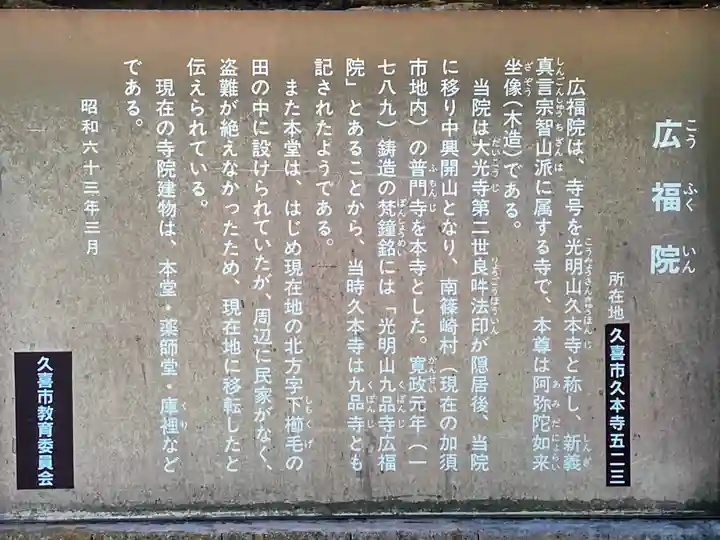 広福院
こうふくいん
所在地 久喜市久本寺五二三
広福院は、寺号を光明山久本寺と称し、新義
真言宗智山派に属する寺で、本尊は阿弥陀如来
坐像(木造)である。
当院は大光寺第二世良吽法印が隠居後、当院
に移り中興開山となり、南篠崎村(現在の加須
市地内)の普門寺を本寺とした。寛政元年(一
七八九)鋳造の梵鐘銘には「光明山九品寺広福
院」とあることから、当時久本寺は九品寺とも
記されたようである。
また本堂は、はじめ現在地の北方字下櫛毛の
田の中に設けられていたが、周辺に民家がなく、
盗難が絶えなかったため、現在地に移転したと
伝えられている。
現在の寺院建物は、本堂・薬師堂・庫裡など
である。
昭和六十三年三月
久喜市教育委員会